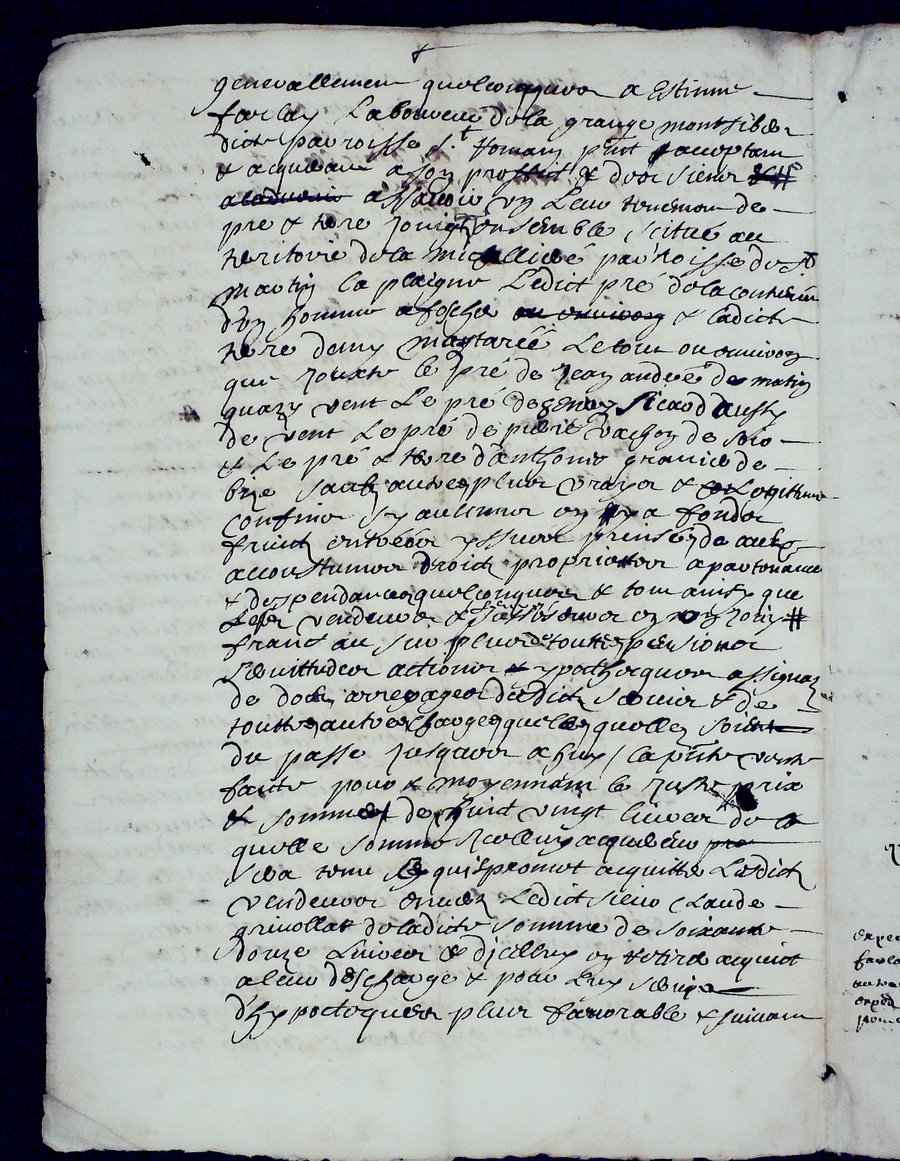 generallement quelconques a Estienne
farlay Laboureur de la grange montsiber
dict parroisse St Romain p̃nt acceptant
& acquerant a son proffict & de ses siens
assavoir un leur tenement de
pre & terre joinctz ensemble scitué au
teritoire de la parroisse de St
martin la plaigne Ledict pré de la contenue
d'un homme a foscher & ladicte
terre demy mayterée Le tout ou environ
que jouxte le pré de Jean andreé de matin
quazy vent Le pré de Sicaud aussy
de vent Le pré de pierre Vachon de soir
& Le pré & terre d'anthoine granier de
bize sauf autres plus vrayes & Legittimes
confines sy aulcunes en y a fondz
fruictz entrées yssues prinses de aux
accoustumées droictz proprietes apartenances
& despendances quelconques & tout ainsy que
Lesd vendeurs & en ont jouy #
franc au surplus de toutes pensions
Servitudes actions & ypothecques assignaz
de dotz arreyages dudict servis & de
touttes autres charges quelles quelles soient
du passé jusques a huy / la p̃nte vente
faicte pour & moyennant le juste prix
& somme de huict vingt livres de la
quelle somme Icelluy acquereur pro
sera tenu & quis promet acquitter Lesdictz
vendeurs envers Ledict sieur Claude
grivollat de ladicte somme de soixante
douze Livres & d'icelluy en retirer acquict
a leur descharge & pour luy servir
d'hypotoques plus favorable & suivant